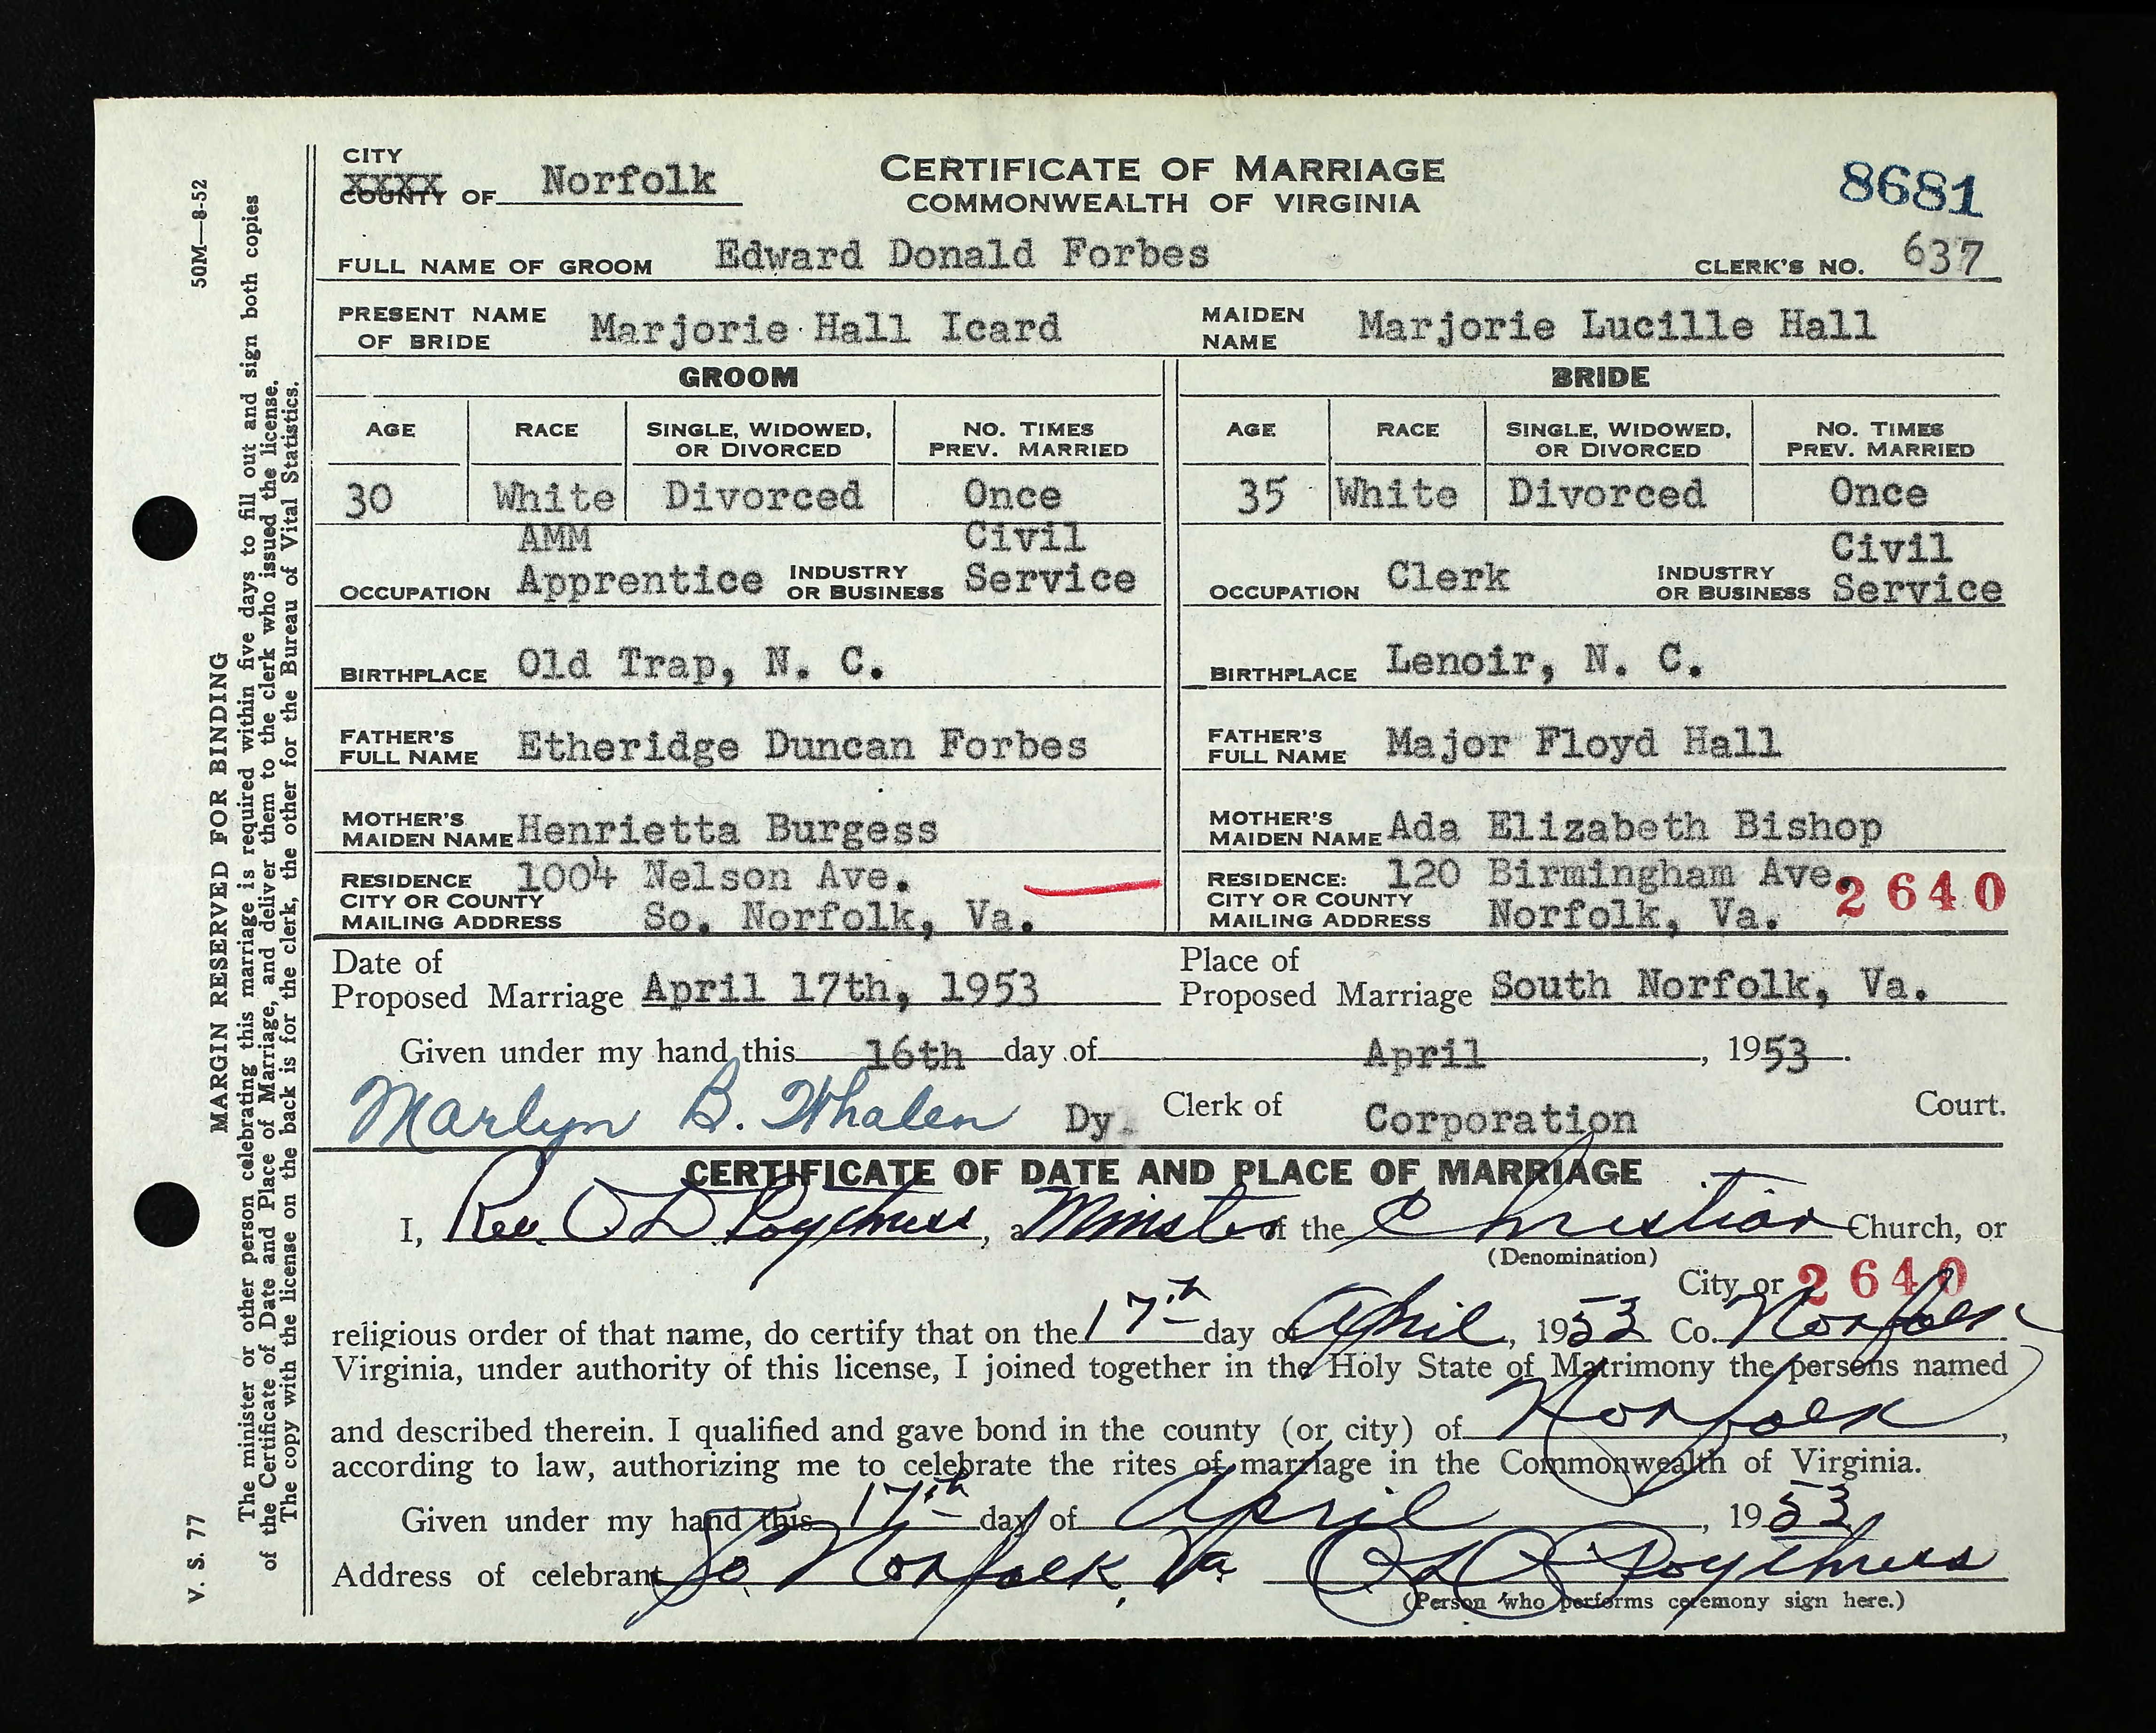 CITY
XXXX
COUNTY OF Norfolk
CERTIFICATE OF MARRIAGE
COMMONWEALTH OF VIRGINIA
8681
FULL NAME OF GROOM Edward Donald Forbes CLERK'S NO. 637
PRESENT NAME OF BRIDE Marjorie Hall Icard MAIDEN NAME Marjorie Lucille Hall
GROOM BRIDE
AGE RACE SINGLE, WIDOWED, OR DIVORCED NO. TIMES PREV. MARRIED AGE RACE SINGLE, WIDOWED, OR DIVORCED NO. TIMES PREV. MARRIED
30 White Divorced Once 35 White Divorced Once
OCCUPATION AMM Apprentice INDUSTRY OR BUSINESS Civil Service OCCUPATION Clerk INDUSTRY OR BUSINESS Civil Service
BIRTHPLACE Old Trap, N. C. BIRTHPLACE Lenoir, N. C.
FATHER'S FULL NAME Etheridge Duncan Forbes FATHER'S FULL NAME Major Floyd Hall
MOTHER'S MAIDEN NAME Henrietta Burgess MOTHER'S MAIDEN NAME Ada Elizabeth Bishop
RESIDENCE CITY OR COUNTY MAILING ADDRESS 1004 Nelson Ave. So. Norfolk, Va. RESIDENCE: CITY OR COUNTY MAILING ADDRESS 120 Birmingham Ave. Norfolk, Va. 2640
Date of Proposed Marriage April 17th, 1953 Place of Proposed Marriage South Norfolk, Va.
Given under my hand this 16th day of April, 1953.
Marlyn B. Whalen Dy. Clerk of Corporation Court.
CERTIFICATE OF DATE AND PLACE OF MARRIAGE
I, Rev. O D Poythress, a Minster of the Christian Church, or
(Denomination)
City or 2640
religious order of that name, do certify that on the 17th day of April, 1953 Co. Norfolk
Virginia, under authority of this license, I joined together in the Holy State of Matrimony the persons named
and described therein. I qualified and gave bond in the county (or city) of Norfolk,
according to law, authorizing me to celebrate the rites of marriage in the Commonwealth of Virginia.
Given under my hand this 17th day of April, 1953
Address of celebrant So Norfolk, Va. O D Poythress
(Person who performs ceremony sign here.)
V. S. 77 MARGIN RESERVED FOR BINDING 50M—8-52
The minister or other person celebrating this marriage is required within five days to fill out and sign both copies
of the Certificate of Date and Place of Marriage, and deliver them to the clerk who issued the license.
The copy with the license on the back is for the clerk, the other for the Bureau of Vital Statistics.